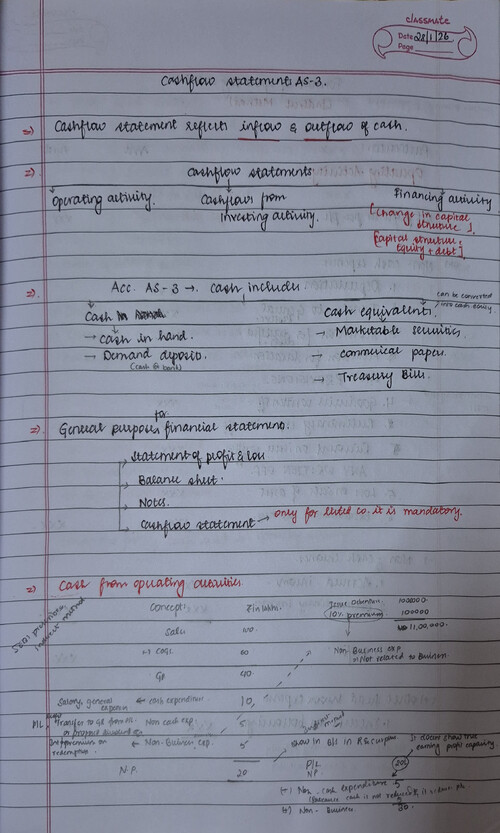 classmate
Date 28/1/26
Page
Cashflow statements AS-3.
=) Cashflow statement reflects inflow & outflow of cash.
=) Cashflow statements
Operating activity. Cashflows from Investing activity. Financing activity
[change in capital structure].
[capital structure equity + debt].
=) Acc. AS-3 → cash includes
Cash in Cash equivalents. can be converted into cash easily
→ cash in hand. → Marketable securities.
→ Demand deposits. → commercial paper.
(cash @ bank)
→ Treasury Bills.
=) General purpose for financial statement.
Statement of profit & loss
Balance sheet.
Notes.
Cashflow statement → only for listed co. it is mandatory.
=) Cash from operating activities
SEBI prescribes indirect method
Concept: Fin lakhs. Issue debenture. 1000000.
10% premium 100000
Sales 100. 11,00,000.
(-) COGS 60 Non-Business exp.
Not related to Business.
GP 40
Salary, general expenses ← cash expenditure 10,
Transfer to GR from P/L Non cash exp. 5
or proposed dividend
Indirect method
Prem on redemption ← Non-Business exp. 5 show in B/S in R&Surplus It doesn't show true earning profit capacity
N.P. 20 P/L NP 20
(+) Non-cash expenditure 5
(+) Non-Business 5
30